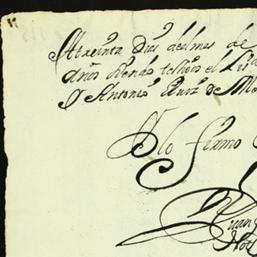 A treinta Dias del mes de
años siendo testigos el Lizd
D Antonio Ruiz de Mo
Y lo firmo
Juan
Not